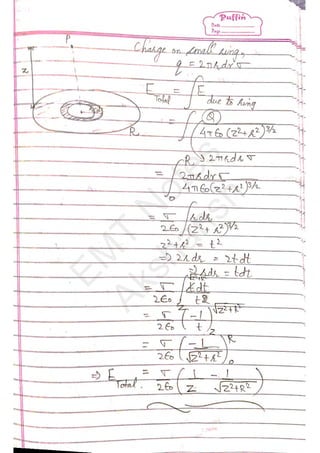 Puffin
Date
Page
P
Charge on small ring,
q = 2πrdrσ
z
E Total = ∫ E due to ring
R
= ∫ (Q) / 4πε0 (z²+r²)^3/2
→ 2πrdrσ
= ∫0^R 2πrdrσ / 4πε0(z²+r²)^3/2
= σ/2ε0 ∫ rdr / (z²+r²)^3/2
z²+r² = t²
⇒ 2rdr = 2tdt
⇒ rdr = tdt.
= σ/2ε0 ∫ tdt / t
= σ/2ε0 (-1/t) z^√z²+R²
= σ/2ε0 (-1/√z²+r²)0^R
⇒ E Total. = σ/2ε0 (1/z - 1/√z²+R²)